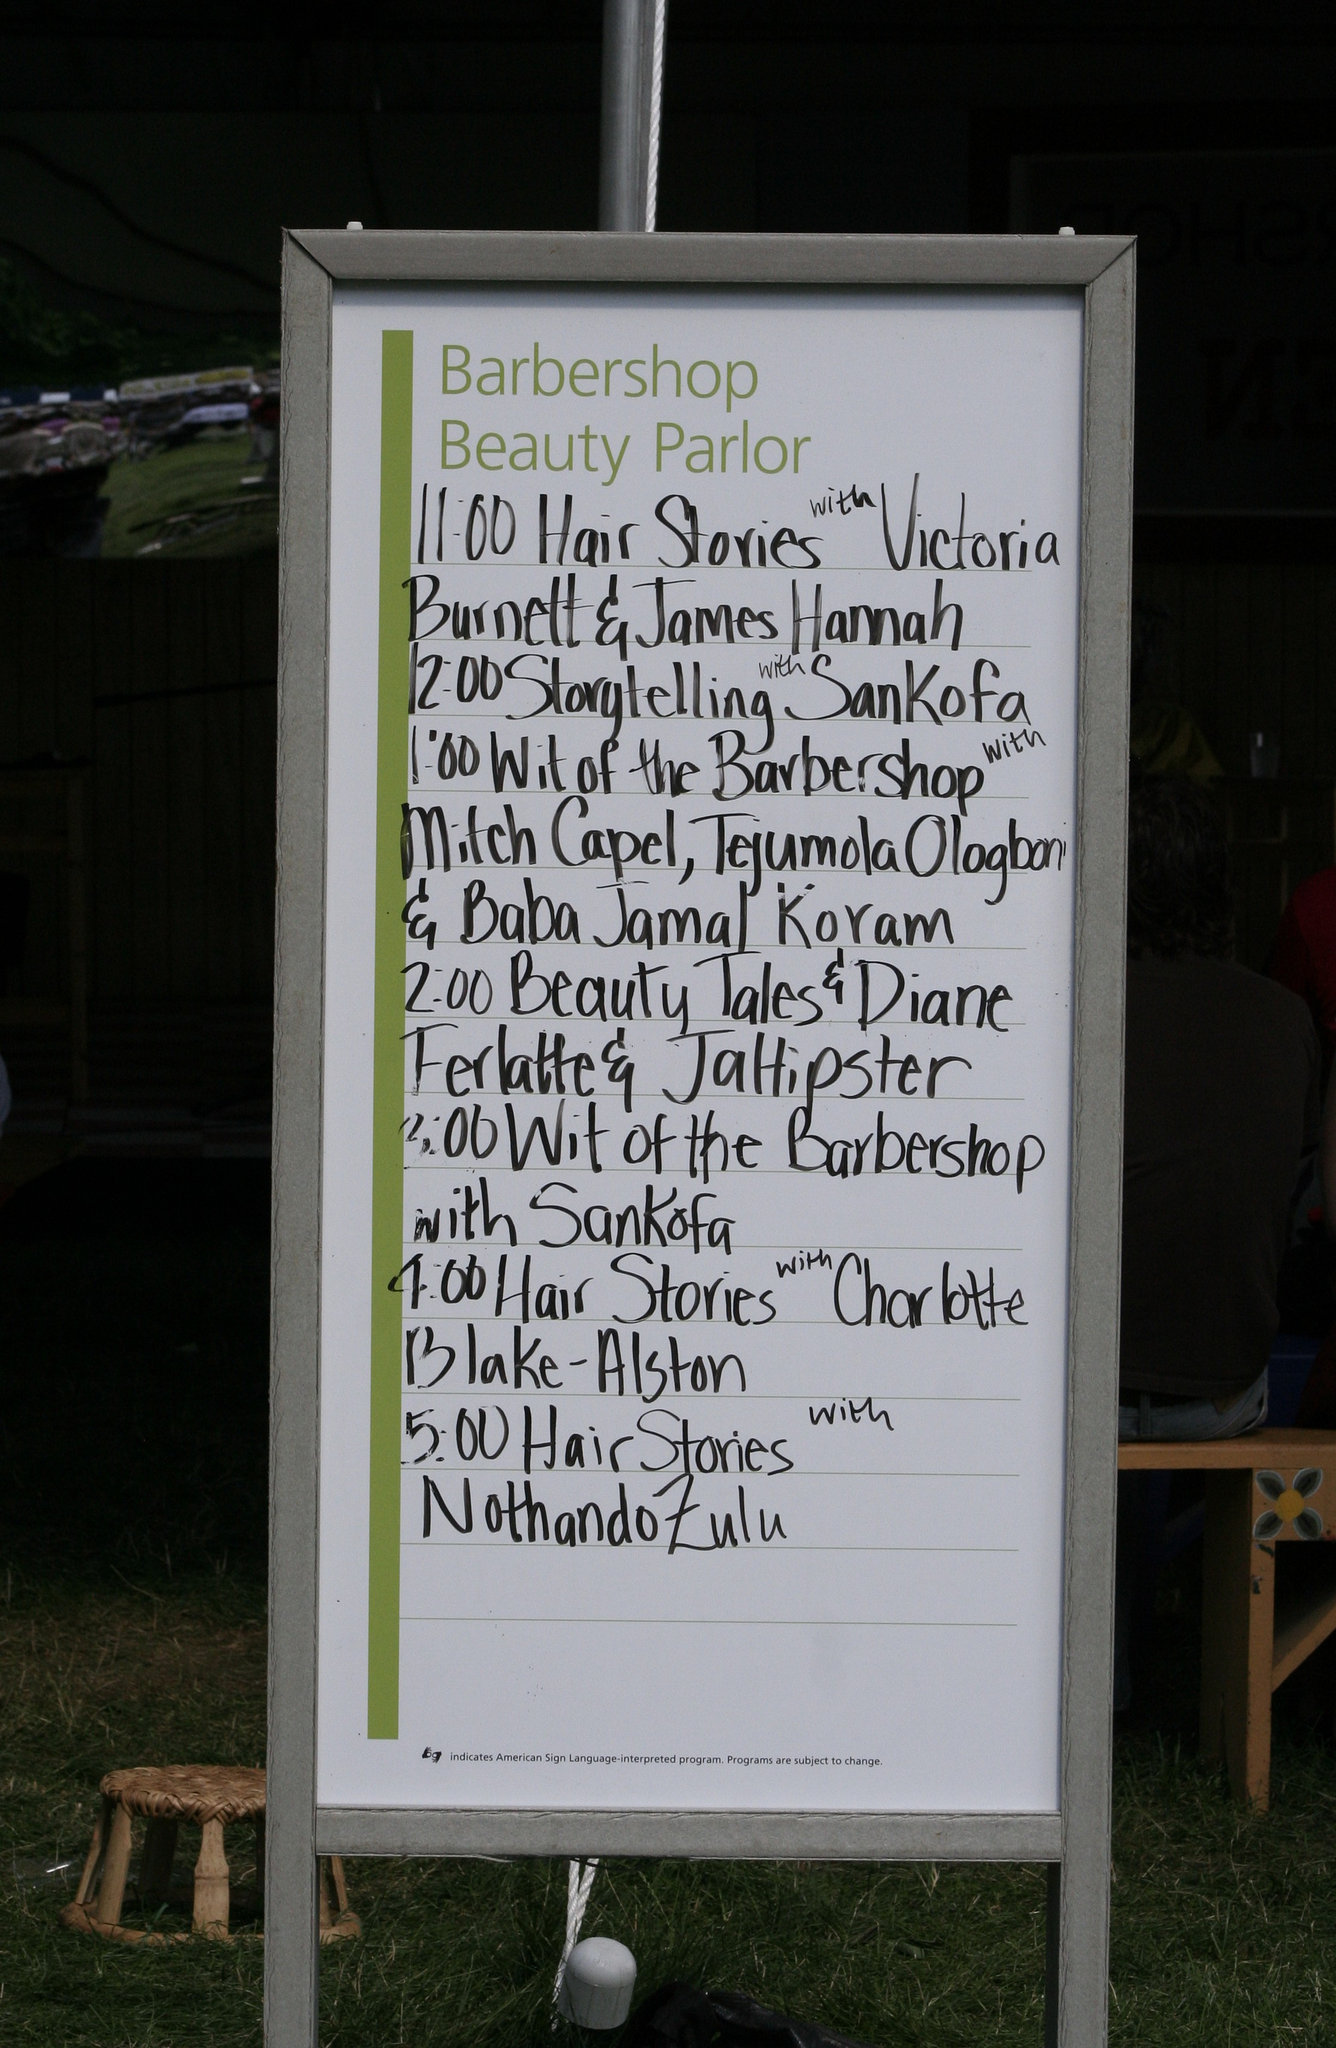 Barbershop
Beauty Parlor
11:00 Hair Stories with Victoria
Burnett & James Hannah
12:00 Storytelling with SanKofa
1:00 Wit of the Barbershop with
Mitch Capel, Tejumola Ologboni
& Baba Jamal Koram
2:00 Beauty Tales & Diane
Ferlatte & JaHipster
3:00 Wit of the Barbershop
with SanKofa
4:00 Hair Stories with Charlotte
Blake-Alston
5:00 Hair Stories with
Nothando Zulu
indicates American Sign Language-interpreted program. Programs are subject to change.